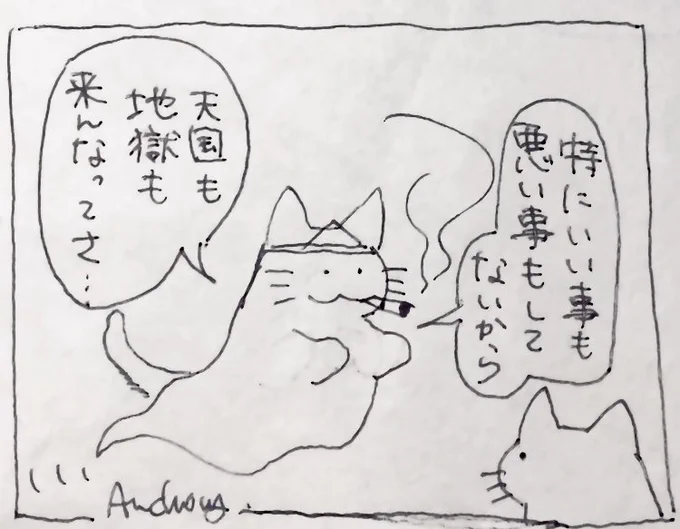 特にいい事も
悪い事もして
ないから
天国も
地獄も
来んなってさ…